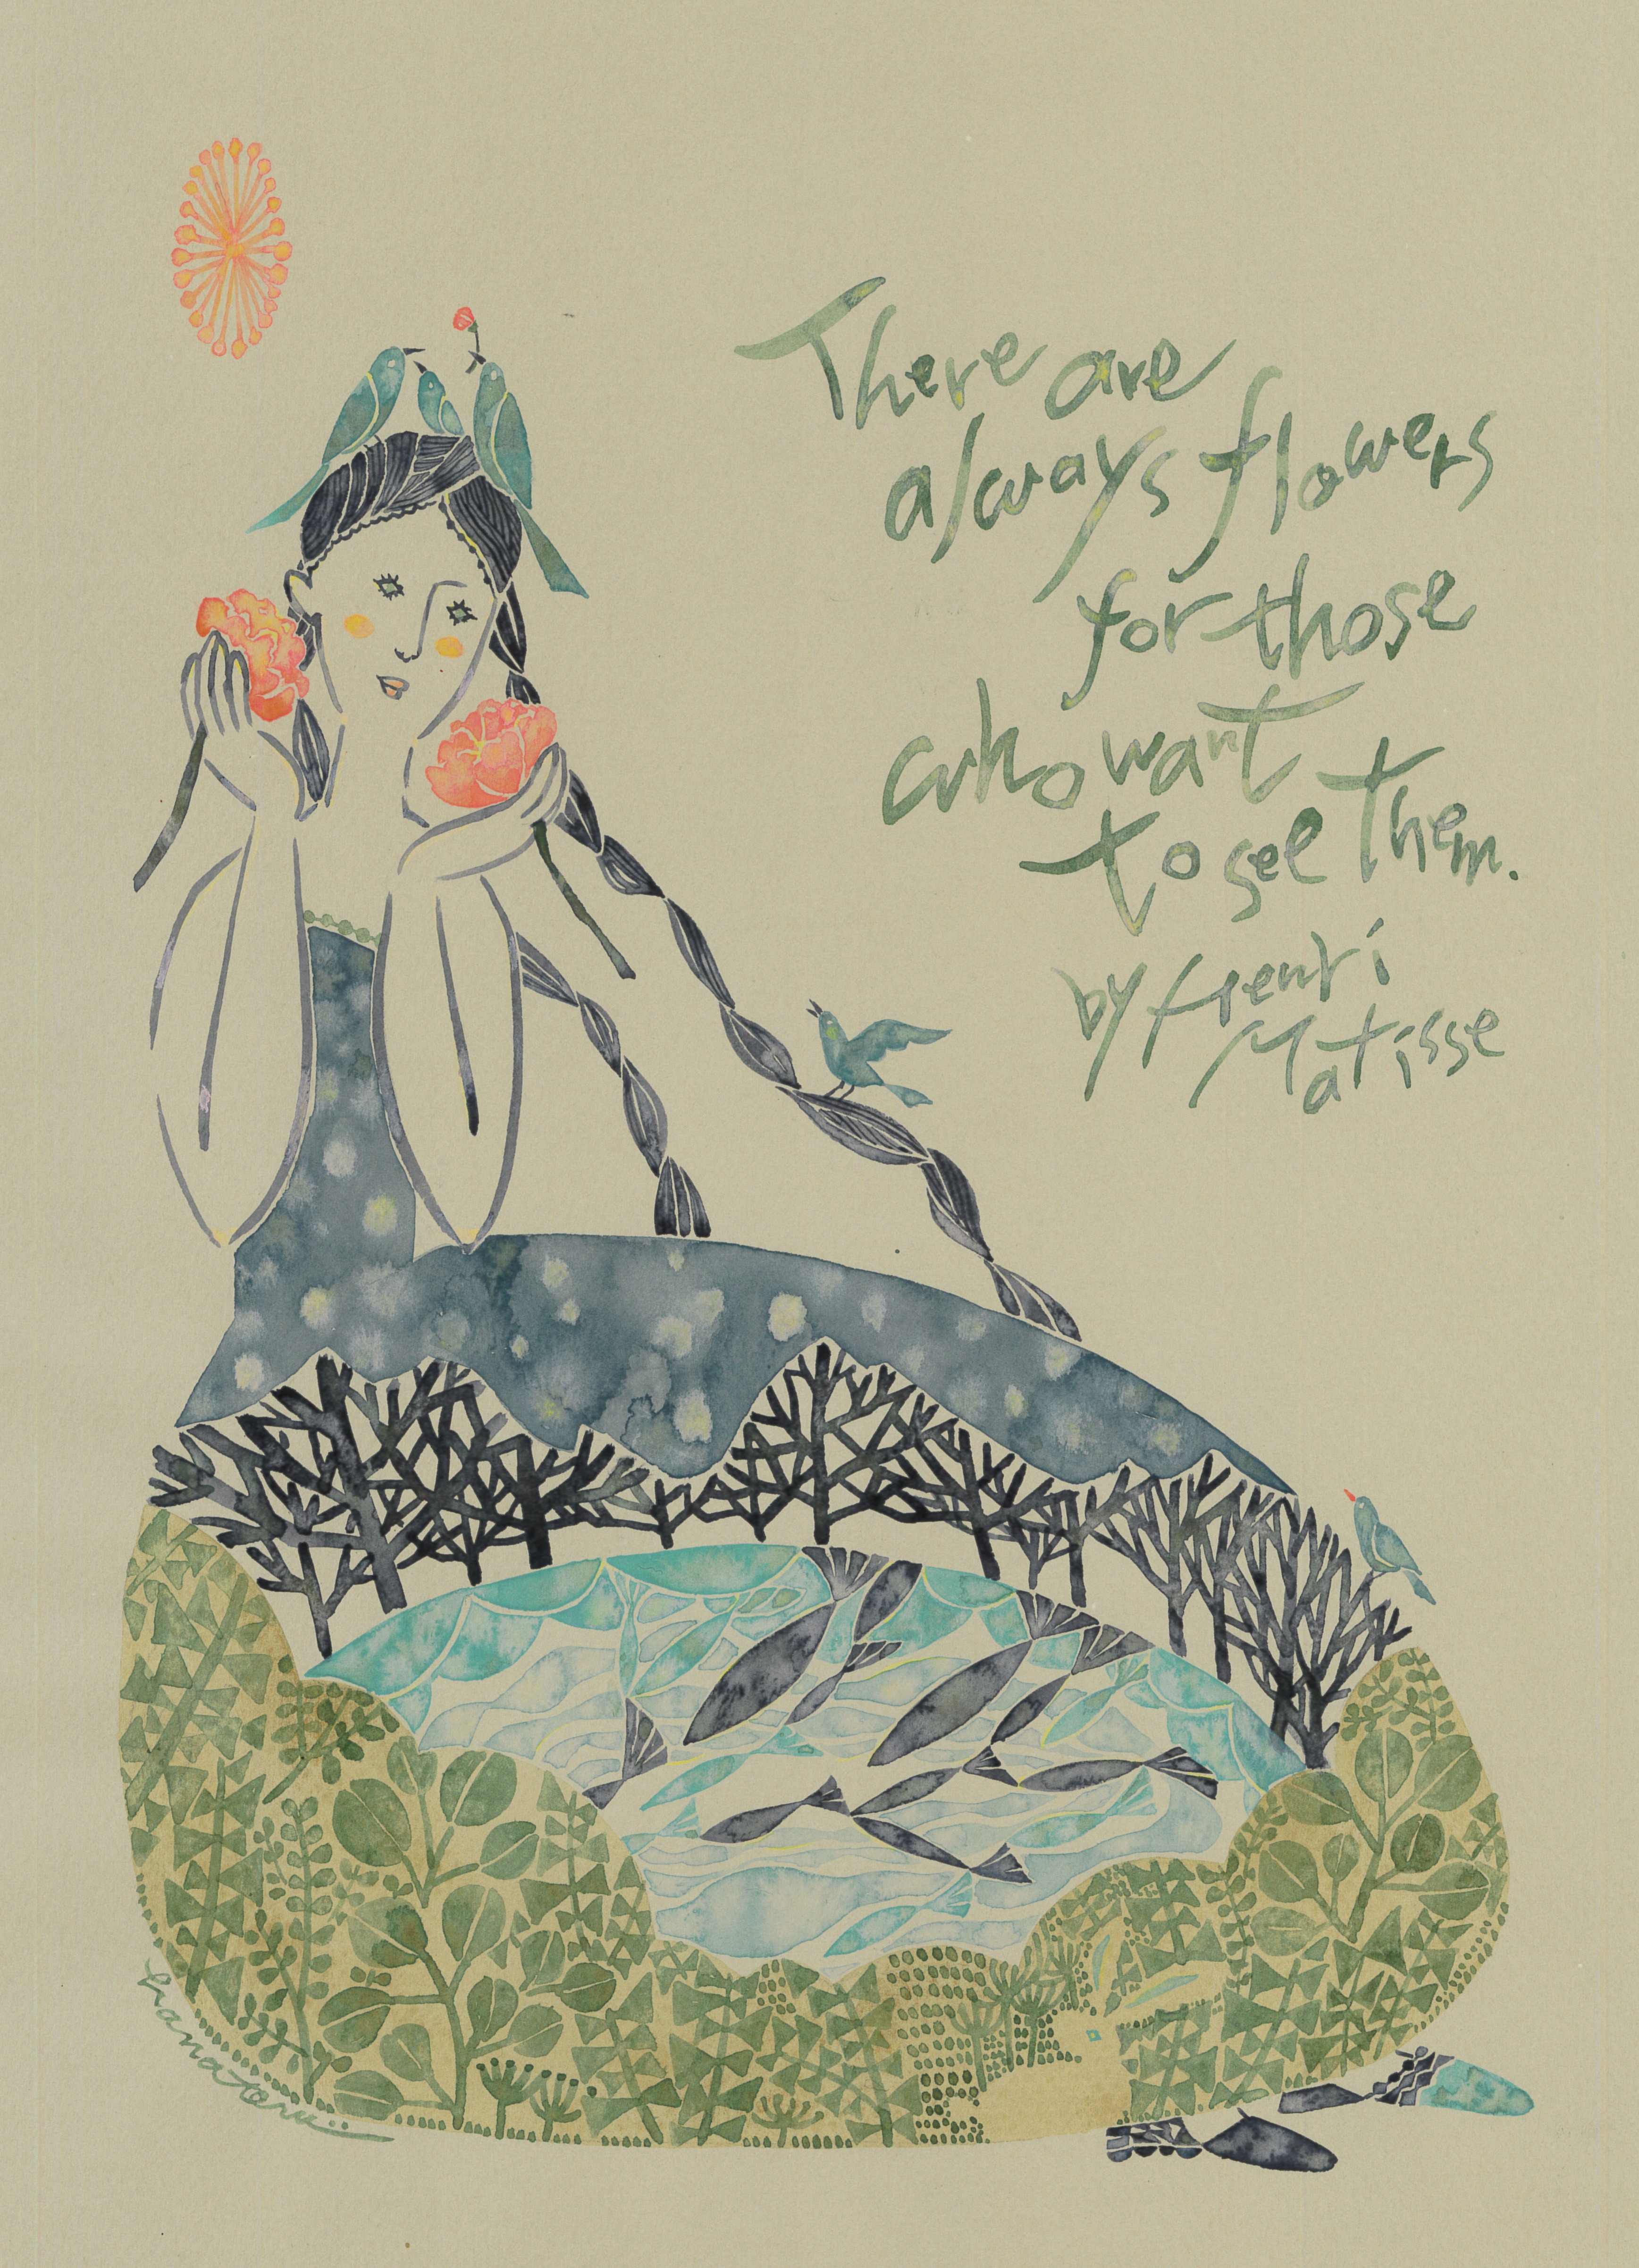 There are
always flowers
for those
who want
to see them.
by Henri
Matisse